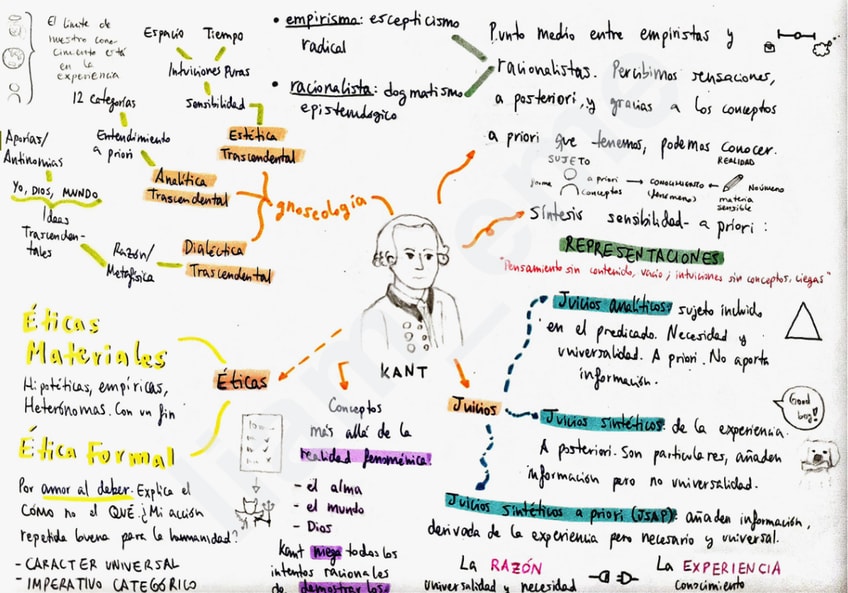 El límite de
nuestro cono-
cimiento está
en la
experiencia
Espacio Tiempo
Intuiciones Puras
Sensibilidad
Estética
Trascendental
12 Categorías
Entendimiento
a priori
Analítica
Trascendental
Aporías/
Antinomias
Yo, DIOS, MUNDO
Ideas
Trascenden-
tales
Razón/
Metafísica
Dialéctica
Trascendental
gnoseología
• empirismo: escepticismo
radical
• racionalista: dogmatismo
epistemológico
Punto medio entre empiristas y
racionalistas. Percibimos sensaciones,
a posteriori, y gracias a los conceptos
a priori que tenemos, podemos conocer.
REALIDAD
SUJETO
forma
a priori
conceptos
CONOCIMIENTO
(fenómeno)
Noúmeno
materia
sensible
Síntesis sensibilidad - a priori:
REPRESENTACIONES
"Pensamiento sin contenido, vacío; intuiciones sin conceptos, ciegas"
KANT
Éticas
Éticas
Materiales
Hipotéticas, empíricas,
Heterónomas. Con un fin
Ética Formal
Por amor al deber. Explica el
CÓMO no el QUÉ. ¿Mi acción
repetida buena para la humanidad?
- CARACTER UNIVERSAL
- IMPERATIVO CATEGÓRICO
Conceptos
más allá de la
realidad fenoménica:
- el alma
- el mundo
- Dios
Kant niega todos los
intentos racionales
de demostrarlos
Juicios
Juicios analíticos: sujeto incluido
en el predicado. Necesidad y
universalidad. A priori. No aporta
información.
Juicios sintéticos: de la experiencia.
A posteriori. Son particulares, añaden
información pero no universalidad.
Good
boy!
Juicios sintéticos a priori (JSAP): añaden información,
derivada de la experiencia pero necesario y universal.
La RAZÓN
universalidad y necesidad
La EXPERIENCIA
conocimiento